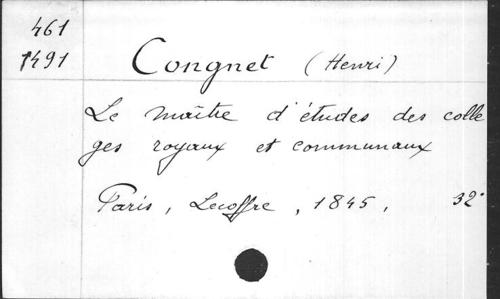 461
1491
Congnet (Henri)
Le maître d'études des colle
ges royaux et communaux
Paris, Lecoffre, 1845, 32°